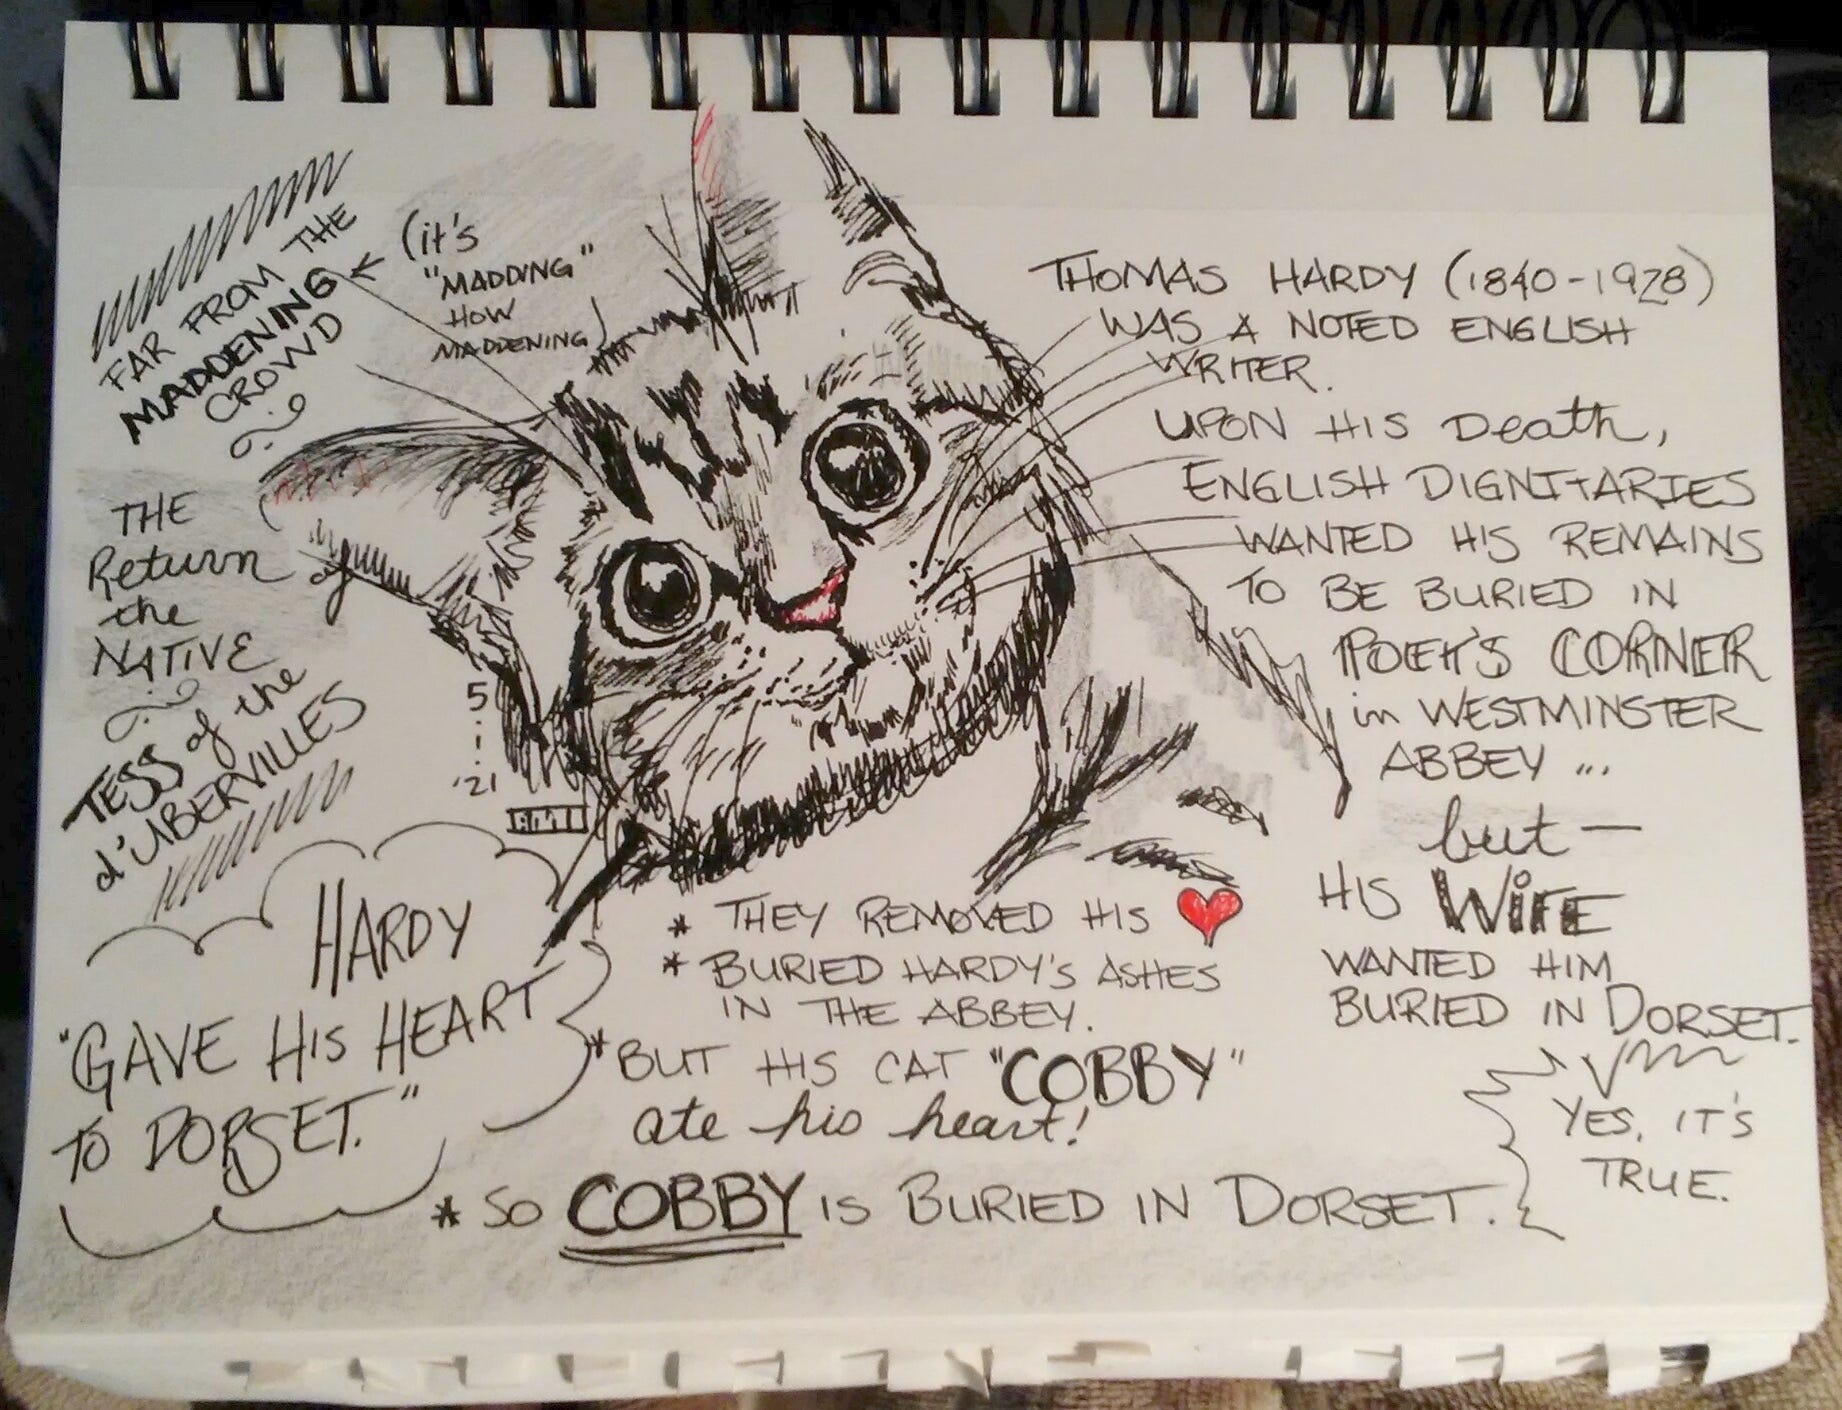 FAR FROM THE
MADDENING
CROWD
(it's
"MADDING"
HOW
MADDENING)
THE
Return
of
the
NATIVE
TESS of the
d'UBERVILLES
5
1
'21
THOMAS HARDY (1840-1928)
WAS A NOTED ENGLISH
WRITER.
UPON HIS Death,
ENGLISH DIGNITARIES
WANTED HIS REMAINS
TO BE BURIED IN
POET'S CORNER
in WESTMINSTER
ABBEY ...
but —
HIS WIFE
WANTED HIM
BURIED IN DORSET.
* THEY REMOVED HIS ❤
* BURIED HARDY'S ASHES
IN THE ABBEY.
* BUT HIS CAT "COBBY"
ate his heart!
* SO COBBY IS BURIED IN DORSET.
YES, IT'S
TRUE.
HARDY
"GAVE HIS HEART
TO DORSET."